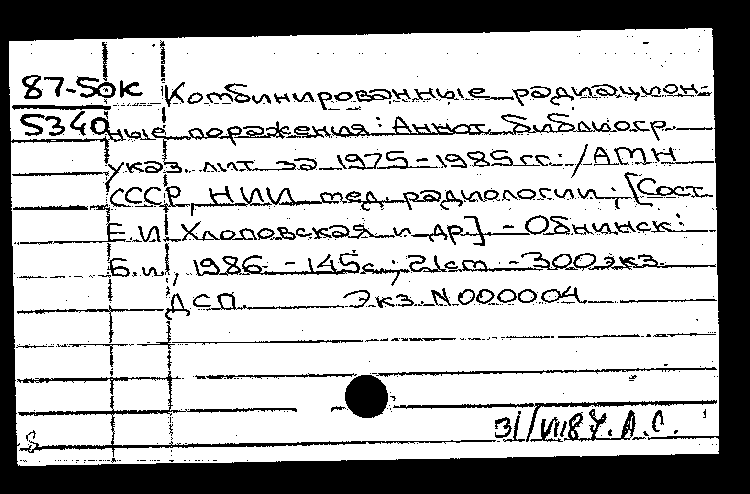 87-50к Комбинированные радиацион-
5340 ные поражения: Аннот. библиогр.
указ. лит. за 1975-1985 гг. / АМН
СССР, НИИ мед. радиологии; [Сост.
Е.И. Хлоповская и др]. - Обнинск:
Б.и., 1986. - 145с.; 21см. - 300экз.
ДСП. Экз. N000004
31/VII 87. А.С.
8